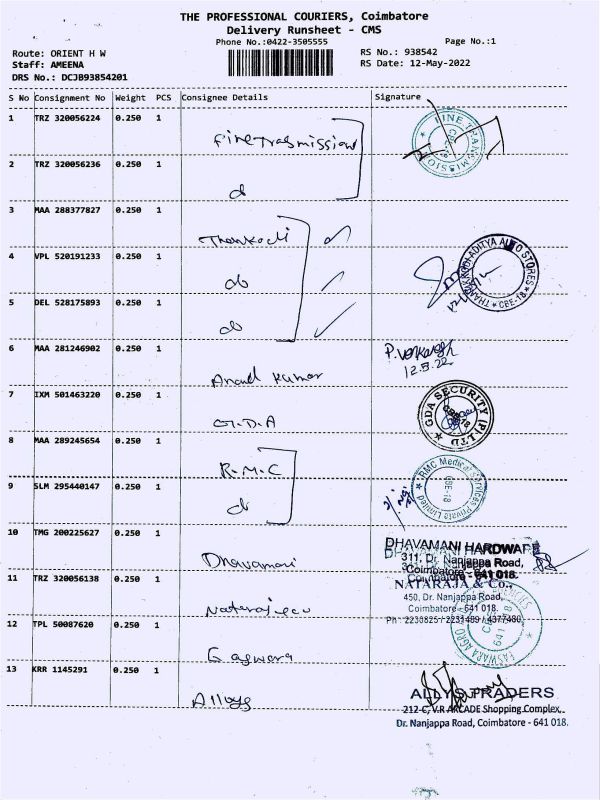 THE PROFESSIONAL COURIERS, Coimbatore
Delivery Runsheet - CMS
Phone No.:0422-3505555 Page No.:1
Route: ORIENT H W RS No.: 938542
Staff: AMEENA RS Date: 12-May-2022
DRS No.: DCJB93854201
S No Consignment No Weight PCS Consignee Details Signature
1 TRZ 320056224 0.250 1
FINE TRANSMISSION
CBE-18
2 TRZ 320056236 0.250 1
do
3 MAA 288377827 0.250 1
4 VPL 520191233 0.250 1
do
THANKKODI ADITYA AUTO STORES
* CBE-18 *
5 DEL 528175893 0.250 1
do
6 MAA 281246902 0.250 1
Anand Kumar
P. Venkatesh
12.5.22
7 IXM 501463220 0.250 1
G.D.A
GDA SECURITY (P) LTD
CBE-18
8 MAA 289245654 0.250 1
R.M.C
RMC Medical Services Private Limited
CBE-18
9 SLM 295440147 0.250 1
do
10 TMG 200225627 0.250 1
Dhavamani
DHAVAMANI HARDWARE
311, Dr. Nanjappa Road,
Coimbatore - 641 018.
11 TRZ 320056138 0.250 1
Nataraj & co
NATARAJA & Co.,
450, Dr. Nanjappa Road,
Coimbatore - 641 018.
Ph : 2230825 / 2231489 / 4377480
12 TPL 50087620 0.250 1
Easwara
EASWARA AGRO AGENCIES
CBE
641 018
13 KRR 1145291 0.250 1
Alloys
ALLYS TRADERS
212-C, V.R ARCADE Shopping Complex,
Dr. Nanjappa Road, Coimbatore - 641 018.